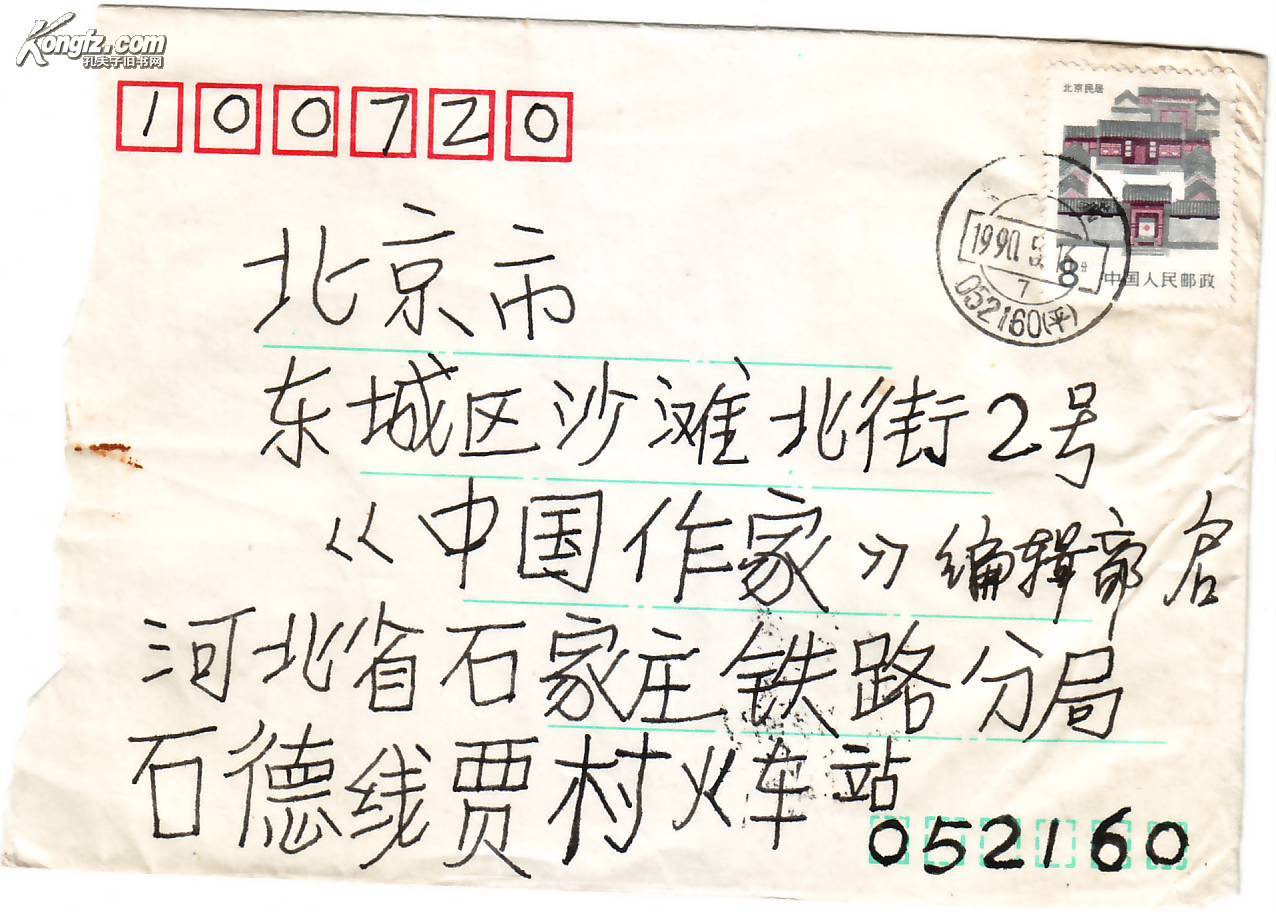 Kongfz.com
孔夫子旧书网
100720
北京民居
8分
中国人民邮政
1990
7
052160(平)
北京市
东城区沙滩北街2号
《中国作家》编辑部 启
河北省石家庄铁路分局
石德线贾村火车站
052160